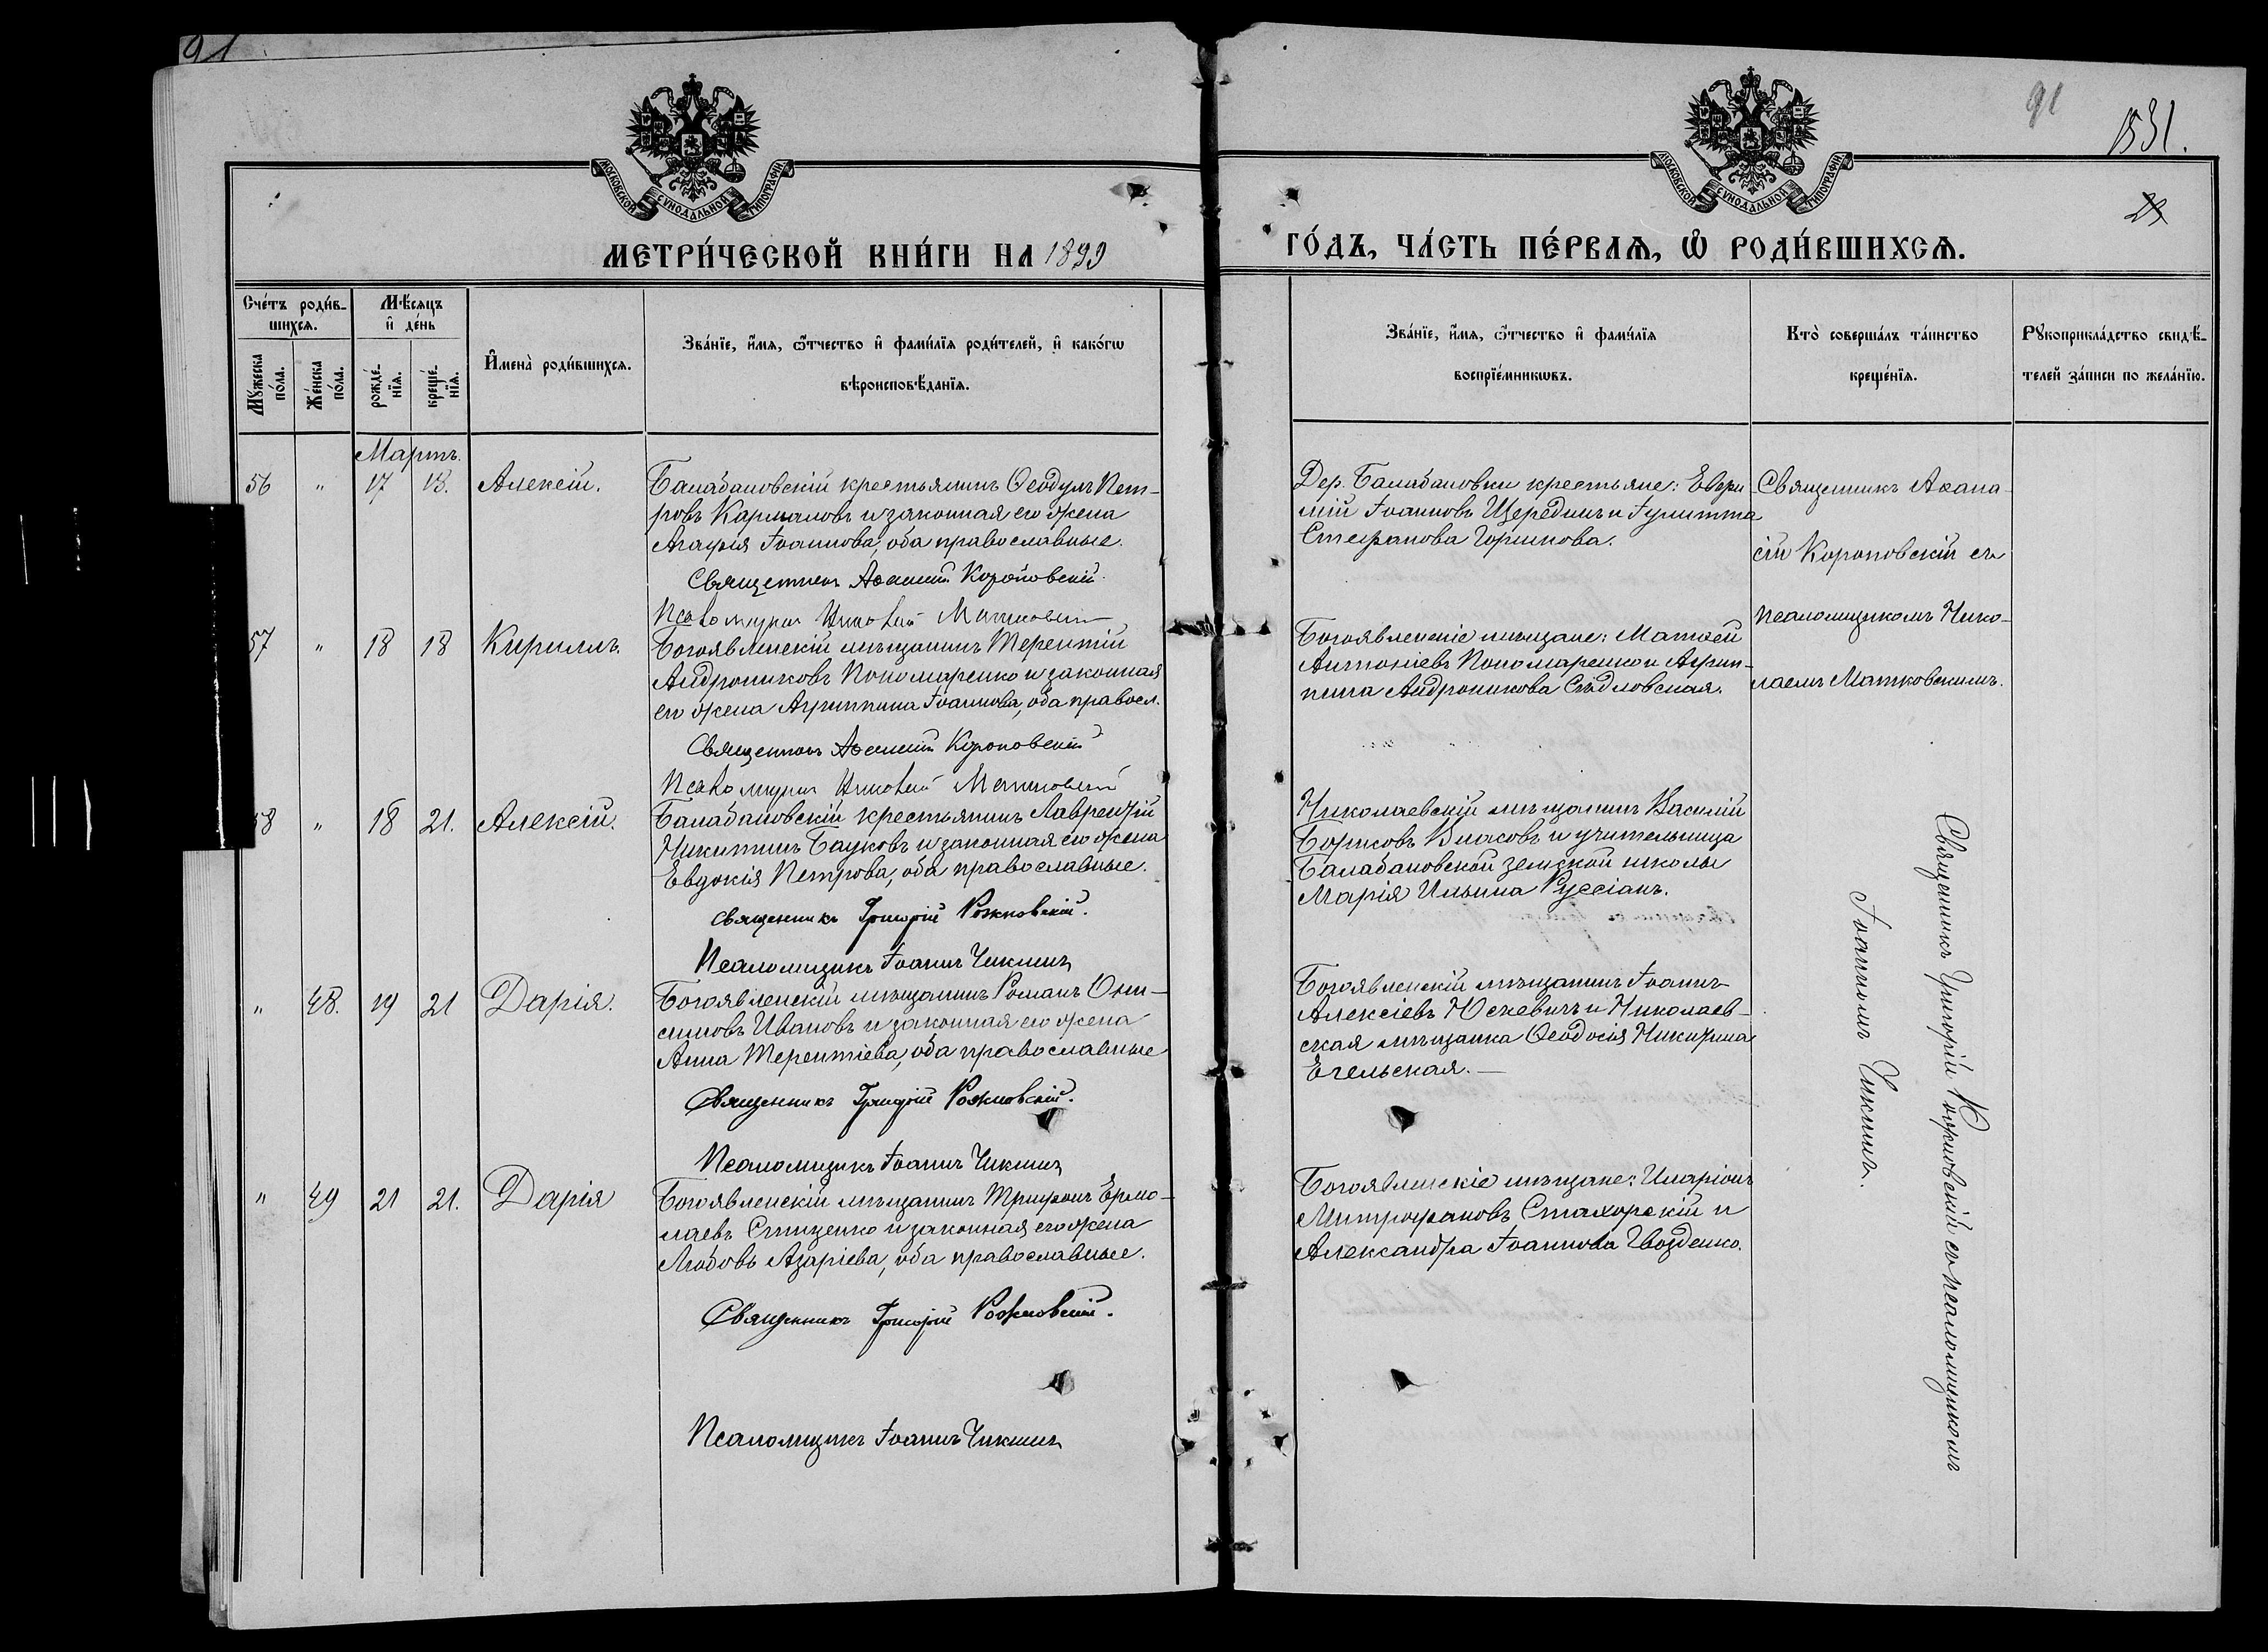 91
91
1531.
29
МОСКОВСКОЙ СУНОДАЛЬНОЙ ТИПОГРАФІИ
МОСКОВСКОЙ СУНОДАЛЬНОЙ ТИПОГРАФІИ
МЕТРИ́ЧЕСКОЙ КНИ́ГИ НА 1899
ГО́ДЪ, ЧА́СТЬ ПЕ́РВАѦ, Ѡ РОДИ́ВШИХСѦ.
Сче́тъ роди́в-
шихсѧ.
Мꙋжеска
по́ла.
Же́нска
по́ла.
Мѣ́сѧцъ
и҆ де́нь
рожде́-
нїѧ.
креще́-
нїѧ.
И҆мена̀ роди́вшихсѧ.
Зва́нїе, и҆́мѧ, ѻ҆́тчество и҆ фами́лїѧ роди́телей, и҆ како́гѡ
вѣроисповѣ́данїѧ.
Зва́нїе, и҆́мѧ, ѻ҆́тчество и҆ фами́лїѧ
воспрїе́мникѡвъ.
Кто̀ соверша́лъ та́инство
креще́нїѧ.
Рꙋкоприкла́дство свидѣ́-
телей за́писи по жела́нїю.
Мартъ.
56 " 17 18. Алексій.
Балабановскій крестьянинъ Ѳеодулъ Пет-
ровъ Кармаловъ и законная его жена
Агафія Іоаннова, оба православные.
Священникъ Аѳанасій Короповскій.
Псаломщикъ Николай Матковскій
Дер. Балабановки крестьяне: Евѳи-
мій Іоанновъ Щерединъ и Іулитта
Стефанова Горшкова.
Священникъ Аѳана-
сій Короповскій съ
псаломщикомъ Нико-
лаемъ Матковскимъ.
57 " 18 18 Кириллъ.
Богоявленскій мѣщанинъ Терентій
Андрониковъ Пономаренко и законная
его жена Агриппина Іоаннова, оба правосл.
Священникъ Аѳанасій Короповскій
Псаломщикъ Николай Матковскій
Богоявленскіе мѣщане: Матѳей
Антоніевъ Пономаренко и Агрип-
пина Андроникова Сѣдловская.
58 " 18 21. Алексій.
Балабановскій крестьянинъ Лаврентій
Никитинъ Бауковъ и законная его жена
Евдокія Петрова, оба православные.
Священникъ Григорій Рожновскій.
Псаломщикъ Іоаннъ Чикинъ
Николаевскій мѣщанинъ Василій
Борисовъ Власовъ и учительница
Балабановской земской школы
Марія Ильина Руссіанъ.
Священникъ Григорій Рожновскій съ псаломщикомъ
Іоанномъ Чикинъ.
" 48. 19 21 Дарія.
Богоявленскій мѣщанинъ Романъ Они-
симовъ Ивановъ и законная его жена
Анна Терентіева, оба православные
Священникъ Григорій Рожновскій.
Псаломщикъ Іоаннъ Чикинъ
Богоявленскій мѣщанинъ Іоаннъ
Алексіевъ Юскевичъ и Николаев-
ская мѣщанка Ѳеодосія Никитина
Егельская.
" 49 21 21. Дарія
Богоявленскій мѣщанинъ Трифонъ Ермо-
лаевъ Стиценко и законная его жена
Любовь Азаріева, оба православные.
Священникъ Григорій Рожновскій.
Псаломщикъ Іоаннъ Чикинъ
Богоявленскіе мѣщане: Иларіонъ
Митрофановъ Стахорскій и
Александра Іоаннова Гвозденко.